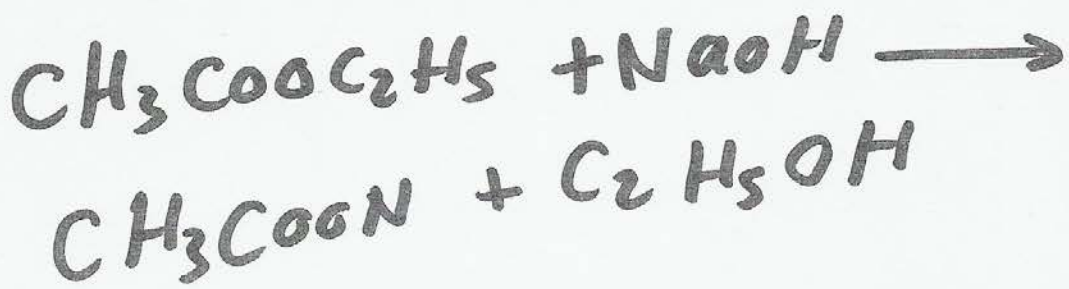 CH₃COOC₂H₅ + NaOH ⟶
CH₃COON + C₂H₅OH